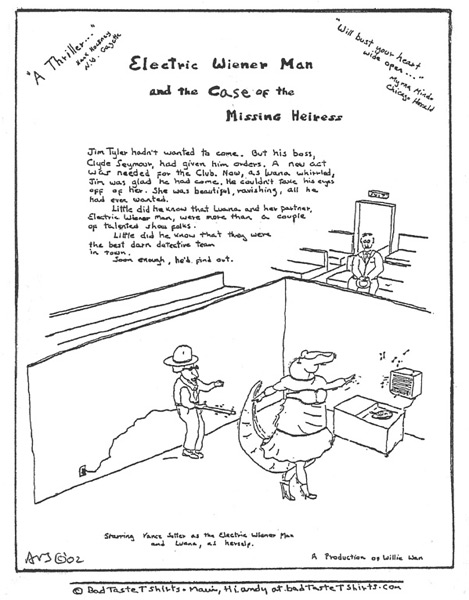 "A Thriller..."
N.Y. Gazette
"Will bust your heart
wide open..."
Myrna Minda
Chicago Herald
Electric Wiener Man
and the Case of the
Missing Heiress
Jim Tyler hadn't wanted to come. But his boss,
Clyde Seymour, had given him orders. A new act
was needed for the Club. Now, as Luana whirled,
Jim was glad he had come. He couldn't take his eyes
off of her. She was beautiful, ravishing, all he
had ever wanted.
Little did he know that Luana and her partner,
Electric Wiener Man, were more than a couple
of talented show folks.
Little did he know that they were
the best darn detective team
in town.
Soon enough, he'd find out.
Starring Vance Seller as the Electric Wiener Man
and Luana, as herself.
A Production of Willie Wan
AVJ©'02
© BadTasteTShirts • Maui, HI andy at badTasteTShirts.com